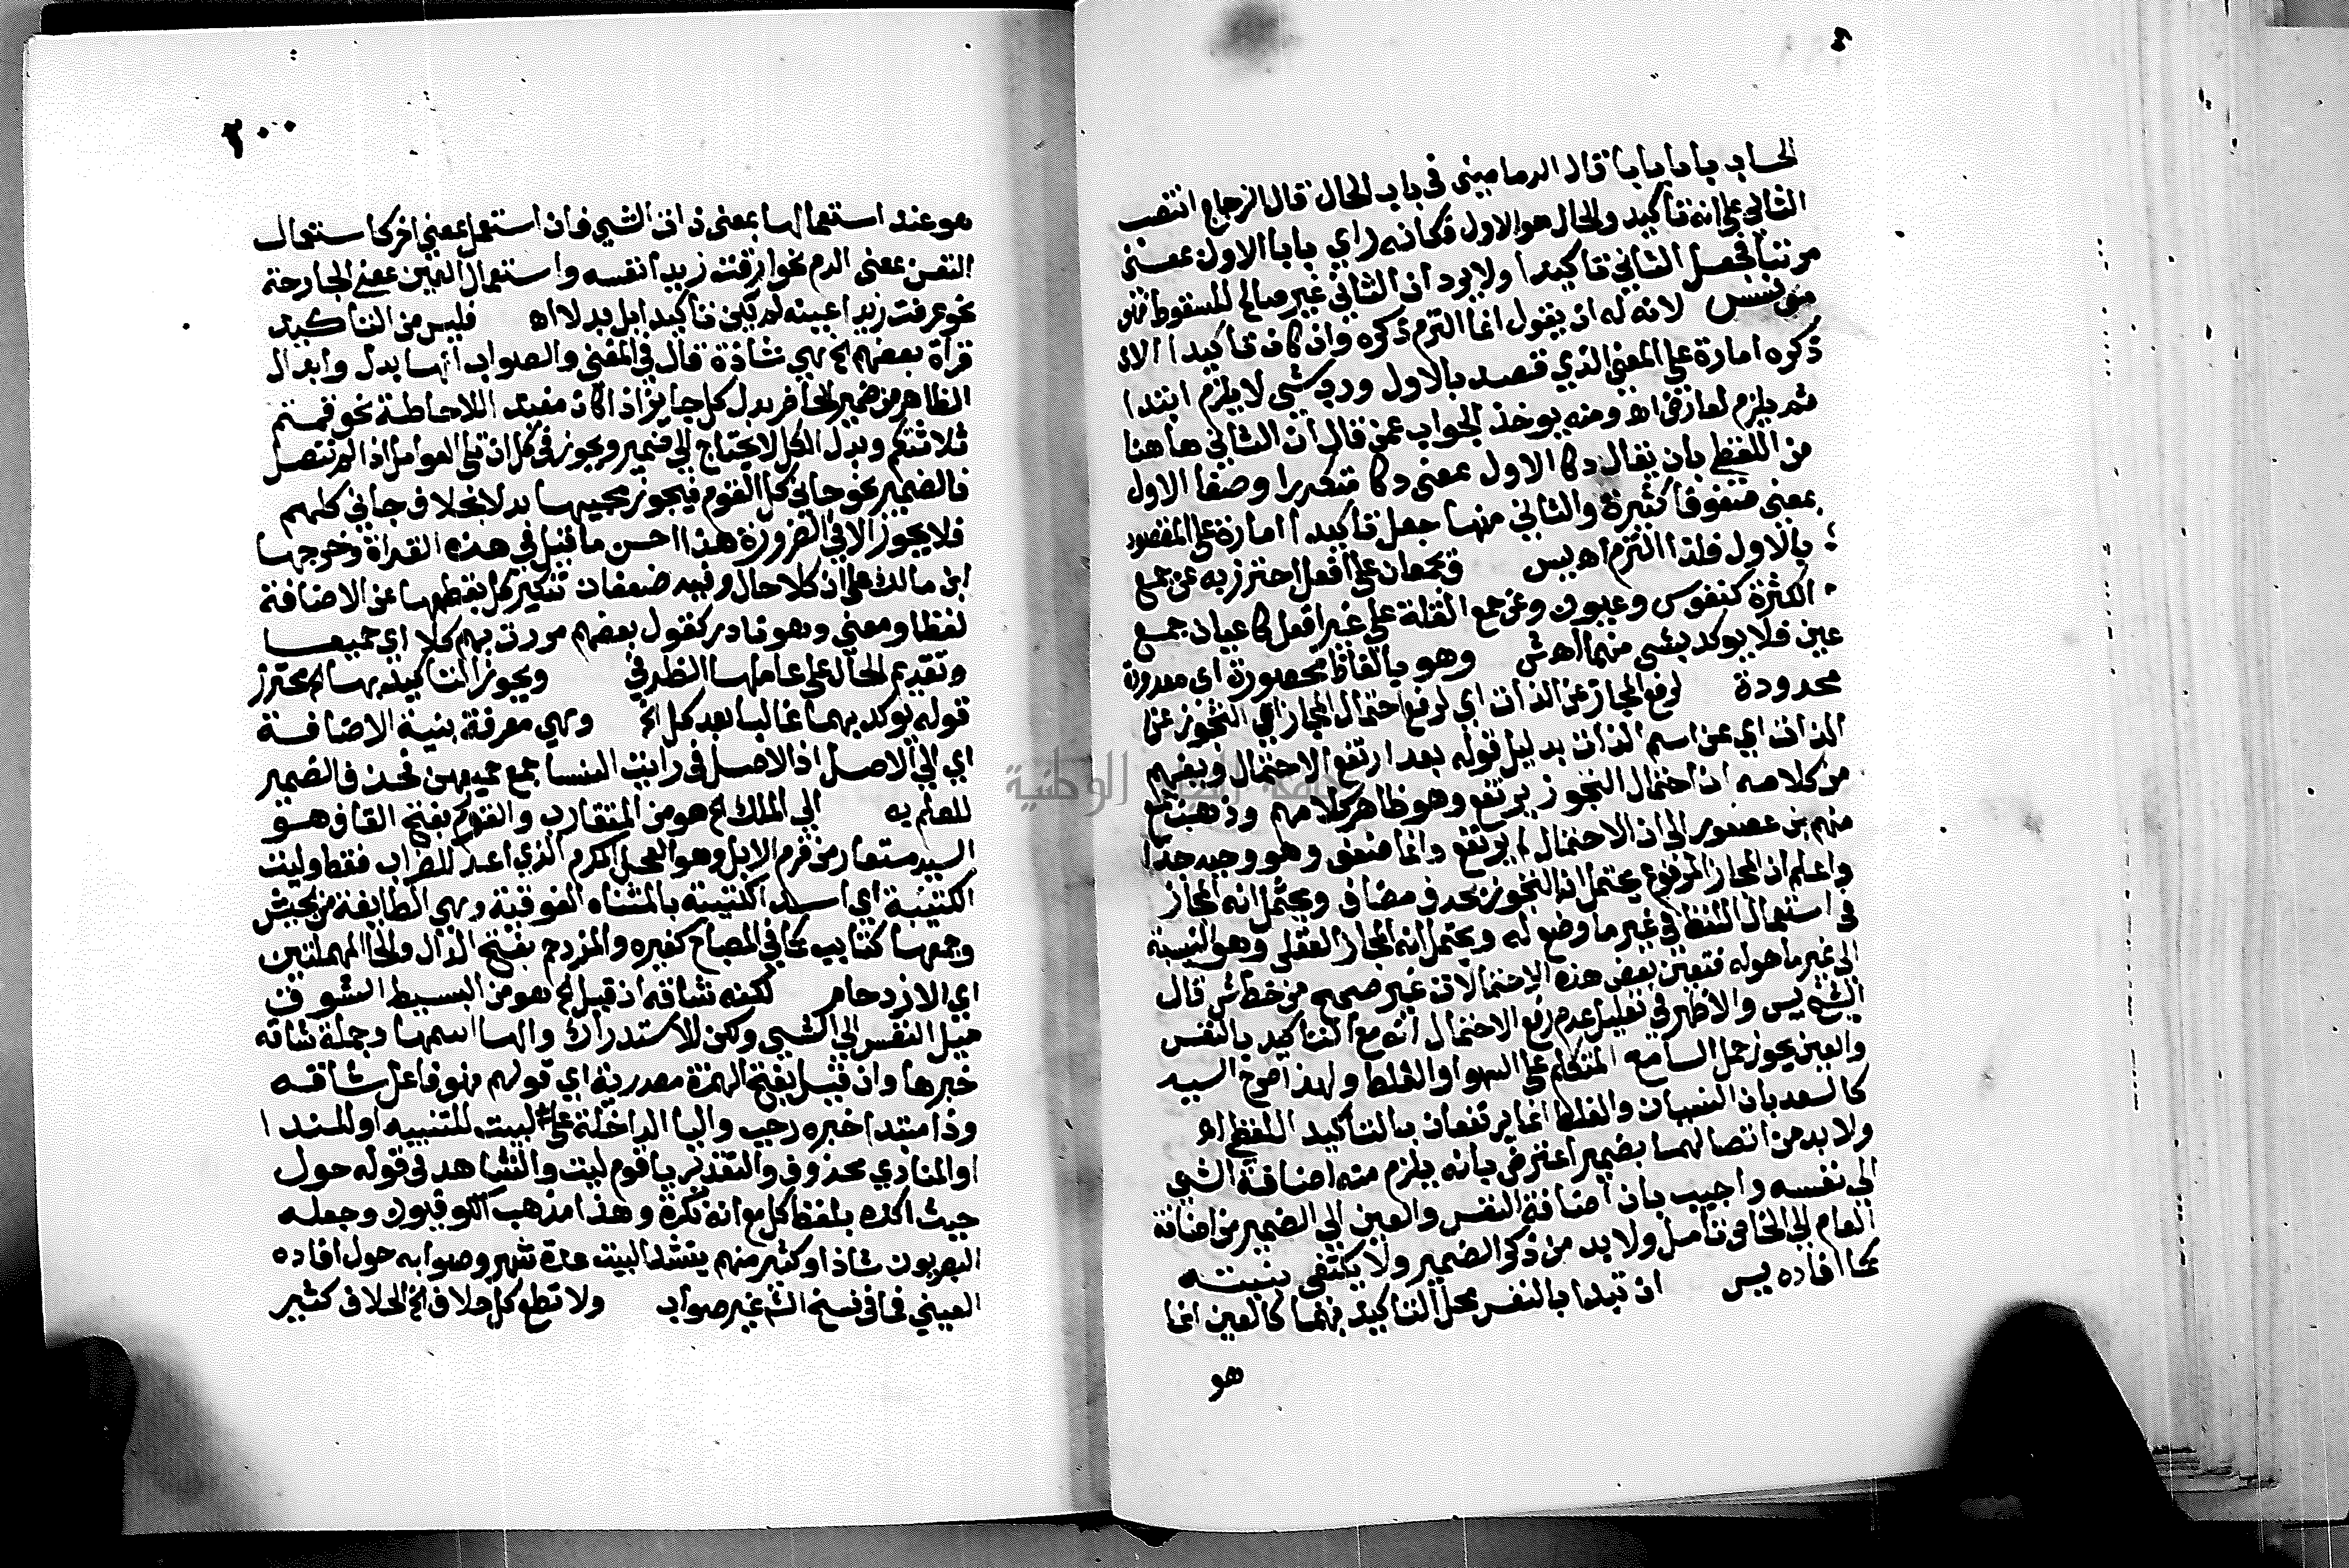 الحساب بابا بابا قال الدماميني في باب الحال قال الزجاج انتصب
الثاني على انه تاكيد والحال هو الاول فكانه راي بابا الاول بمعنى
مرتبا فجعل الثاني تاكيدا ولا يرد ان الثاني غير صالح للسقوط
مونسس لانه له ان يقول انما التزم ذكره وان كان تاكيدا لان
ذكره امارة على المعنى الذي قصد بالاول ورب شي لا يلزم ابتدا
ثم يلزم لعارض اه ومنه يوخذ الجواب عمن قال ان الثاني هاهنا
من اللفظي بان يقال دكا الاول بمعنى دكا متكررا وصفا الاول
بمعنى صفوفا كثيرة والثاني منهما جعل تاكيدا امارة على المقصود
بالاول فلذا التزم اه يس وتجمعان على افعل احترز به عن جمع
الكثرة كنفوس وعيون وعن جمع القلة على غير افعل كاعيان جمع
عين فلا يوكد بشي منهما اه ش وهو بالفاظ محصورة اي معدودة
محدودة لرفع المجاز عن الذات اي لرفع احتمال المجاز اي التجوز عن
الذات اي عن اسم الذات بدليل قوله بعد ارتفع الاحتمال ويفهم
من كلامه ان احتمال التجوز يرتفع وهو ظاهر كلامهم وذهب جمع
منهم بن عصفور الى ان الاحتمال لم يرتفع وانما ضعف وهو وجيه جدا
واعلم ان المجاز المرفوع يحتمل انه التجوز بحذف مضاف ويحتمل انه المجاز
في استعمال اللفظ في غير ما وضع له ويحتمل انه المجاز العقلي وهو النسبة
الى غير ما هو له فتعين بعض هذه الاحتمالات غير صحيح من خط ش قال
الشيخ يس والاظهر في تعليل عدم رفع الاحتمال انه مع التاكيد بالنفس
والعين يجوز حمل السامع المتكلم على السهو او الغلط ولهذا صرح السيد
كالسعد بان النسيان والغلط انما يرتفعان بالتاكيد اللفظي اه
ولا بد من اتصالهما بضمير اعترض بانه يلزم منه اضافة الشي
الى نفسه واجيب بان اضافة النفس والعين الى الضمير من اضافة
العام الى الخاص تامل ولا بد من ذكر الضمير ولا يكتفى بنيته
كما افاده يس ان تبدا بالنفس محل التاكيد بهما كالعين انما
هو
٢٠٠
هو عند استعمالها بمعنى ذات الشي فان استعمل بمعنى اخر كاستعمال
النفس بمعنى الدم نحو ارقت زيدا نفسه واستعمال العين بمعنى الجارحة
نحو عرفت زيدا عينه لم يكن تاكيدا بل بدلا اه فليس من التاكيد
قراة بعضهم الخ وهي شاذة قال في المغني والصواب انها بدل وابدال
الظاهر من ضمير الحاضر بدل كل جايز اذا كان مفيدا للاحاطة نحو قمتم
ثلاثتكم وبدل الكل لا يحتاج الى ضمير ويجوز في كل ان تلي العوامل اذا لم تتصل
بالضمير نحو جاني كل القوم فيجوز مجيها بدلا بخلاف جاني كلهم
فلا يجوز الا في الضرورة هذا احسن ما قيل في هذه القراة وخرجها
ابن مالك على ان كلا حال وفيه ضعفان تنكير كل بقطعها عن الاضافة
لفظا ومعنى وهو نادر كقول بعضهم مررت بهم كلا اي جميعا
وتقديم الحال على عاملها الظرفي ويجوز التاكيد بها الخ محترز
قوله يوكد بهما غالبا بعد كل الخ وهي معرفة بنية الاضافة
اي الى الاصل اذ الاصل في رايت النسا جمع جميعهن فحذف الضمير
للعلم به الى الملك الخ هو من المتقارب والقرم بفتح القاف هو
السيد مستعار من قرم الابل وهو الفحل المكرم الذي اعد للضراب فقط وليث
الكتيبة اي اسد الكتيبة بالمثناه الفوقية وهي الطايفة من الجيش
وجمعها كتايب كما في المصباح كغيره والمزدحم بفتح الدال والحا المهملتين
اي الازدحام لكنه شاقه ان قيل الخ هو من البسيط الشوق
ميل النفس الى الشي ولكن للاستدراك والها اسمها وجملة شاقه
خبرها وان قيل بفتح الهمزة مصدرية اي قولهم فهو فاعل شاقه
وذا مبتدا خبره رجب واليا الداخلة على ليت للتنبيه او للندا
او المنادي محذوف والتقدير يا قوم ليت والشاهد في قوله حول
حيث اكده بلفظ كل مع انه نكرة وهذا مذهب الكوفيون وجعله
البصريون شاذا وكثير منهم ينشد البيت عدة شهر وصوابه حول افاده
العيني فما في نسخ الش غير صواب ولا تطع كل حلاف الخ الحلاف كثير